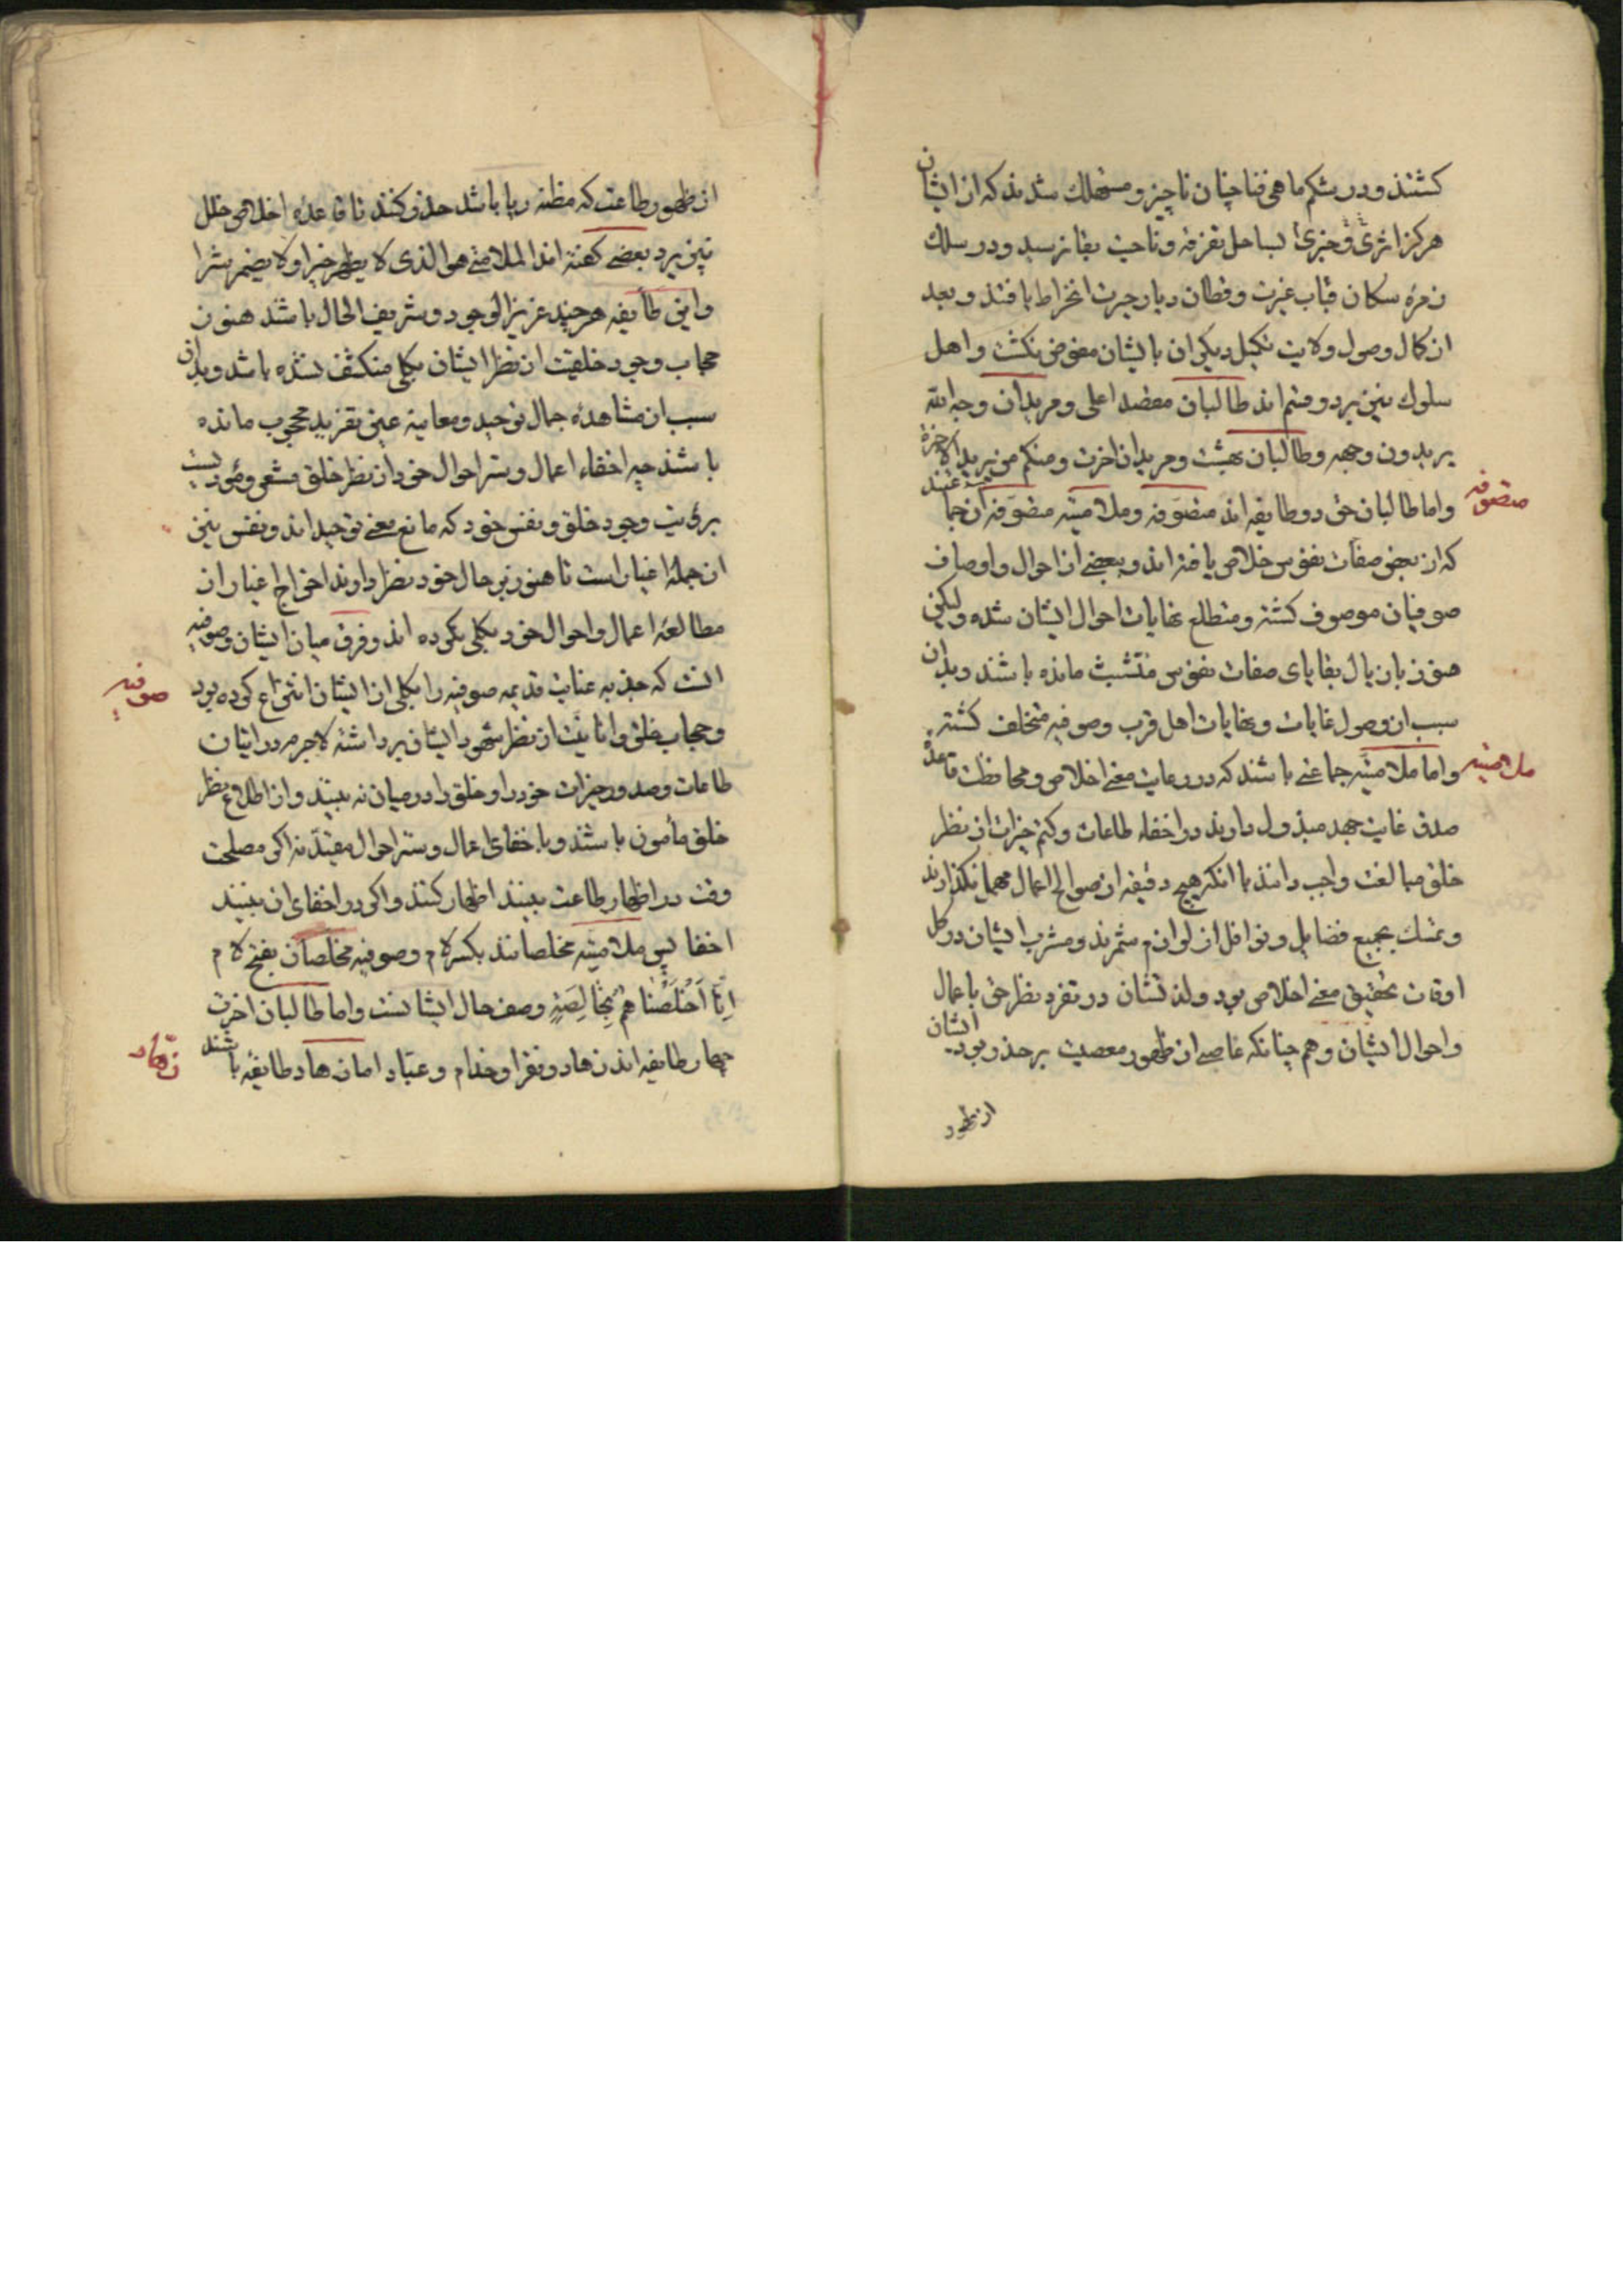 کشتند و در شکم ماهی فنا چنان ناچیز و مستهلک شدند که از ایشان
هرگز اثری و خبری بساحل تفرقه و ناحیت بقا نرسید و در سلک
زمره سکان قباب غیرت و قطان دیار حیرت انخراط یافتند و بعد
از کمال وصول ولایت تکمیل دیگران بایشان مفوض نکشت و اهل
سلوک نیز بر دو قسم اند طالبان مقصد اعلی و مریدان وجه الله
یریدون وجهه و طالبان بهشت و مریدان آخرت و منکم من یرید الآخرة
متصوفه
واما طالبان حق دو طایفه اند متصوفه و ملامتیه متصوفه آن جماعتند
که از بعضی صفات نفوس خلاص یافته اند و ببعضی از احوال و اوصاف
صوفیان موصوف کشته و متطلع نهایات احوال ایشان شده ولیکن
هنوز باذیال بقایای صفات نفوس متشبث مانده باشند و بدان
سبب از وصول غایات و نهایات اهل قرب و صوفیه متخلف کشته
ملامتیه
واما ملامتیه جماعتی باشند که در رعایت معنی اخلاص و محافظت قاعده
صدق غایت جهد مبذول دارند در اخفاء طاعات و کتم خیرات از نظر
خلق مبالغت واجب دانند با آنکه هیچ دقیقه از صوالح اعمال مهمل نکذارند
و تمسک بجمیع فضایل و نوافل از لوازم شمرند و مشرب ایشان در کل
اوقات تحقیق معنی اخلاص بود و لذتشان در تفرد نظر حق باعمال
و احوال ایشان و هم چنانکه عاصی از ظهور معصیت بر حذر بود ایشان
از ظهور
از ظهور طاعت که مظنه ریا باشد حذر کنند تا قاعده اخلاص خلل
نپذیرد بعضی کفته اند الملامتی هو الذی لا یظهر خیرا ولا یضمر شرا
و این طایفه هر چند عزیز الوجود و شریف الحال باشند هنوز
حجاب وجود خلقیت از نظر ایشان بکلی منکشف نشده باشد و بدان
سبب از مشاهده جمال توحید و معاینه عین تفرید محجوب مانده
باشند چه اخفاء اعمال و ستر احوال خود از نظر خلق مشعر و مؤذنست
برؤیت وجود خلق و نفس خود که مانع معنی توحیداند و نفس نیز
از جمله اغیار است تا هنوز بر حال خود نظر دارند اخراج اغیار از
مطالعه اعمال و احوال خود بکلی نکرده اند و فرق میان ایشان و صوفیه
صوفیه
آنست که جذبه عنایت قدیمه صوفیه را بکلی از ایشان انتزاع کرده بود
و حجاب خلق و انانیت از نظر شهود ایشان برداشته لاجرم در اتیان
طاعات و صدور خیرات خود را و خلق را در میان نه بینند و از اطلاع نظر
خلق مأمون باشند و باخفای اعمال و ستر احوال مقید نه اکر مصلحت
وقت در اظهار طاعت بینند اظهار کنند و اکر در اخفای آن بینند
اخفا پس ملامتیه مخلصانند بکسر لام و صوفیه مخلصان بفتح لام
اِنّا اَخْلَصْنا هُم بِخالِصَةٍ وصف حال ایشانست واما طالبان آخرت
زهاد
چهار طایفه اند زهاد و فقرا و خدام و عباد اما زهاد طایفه باشند